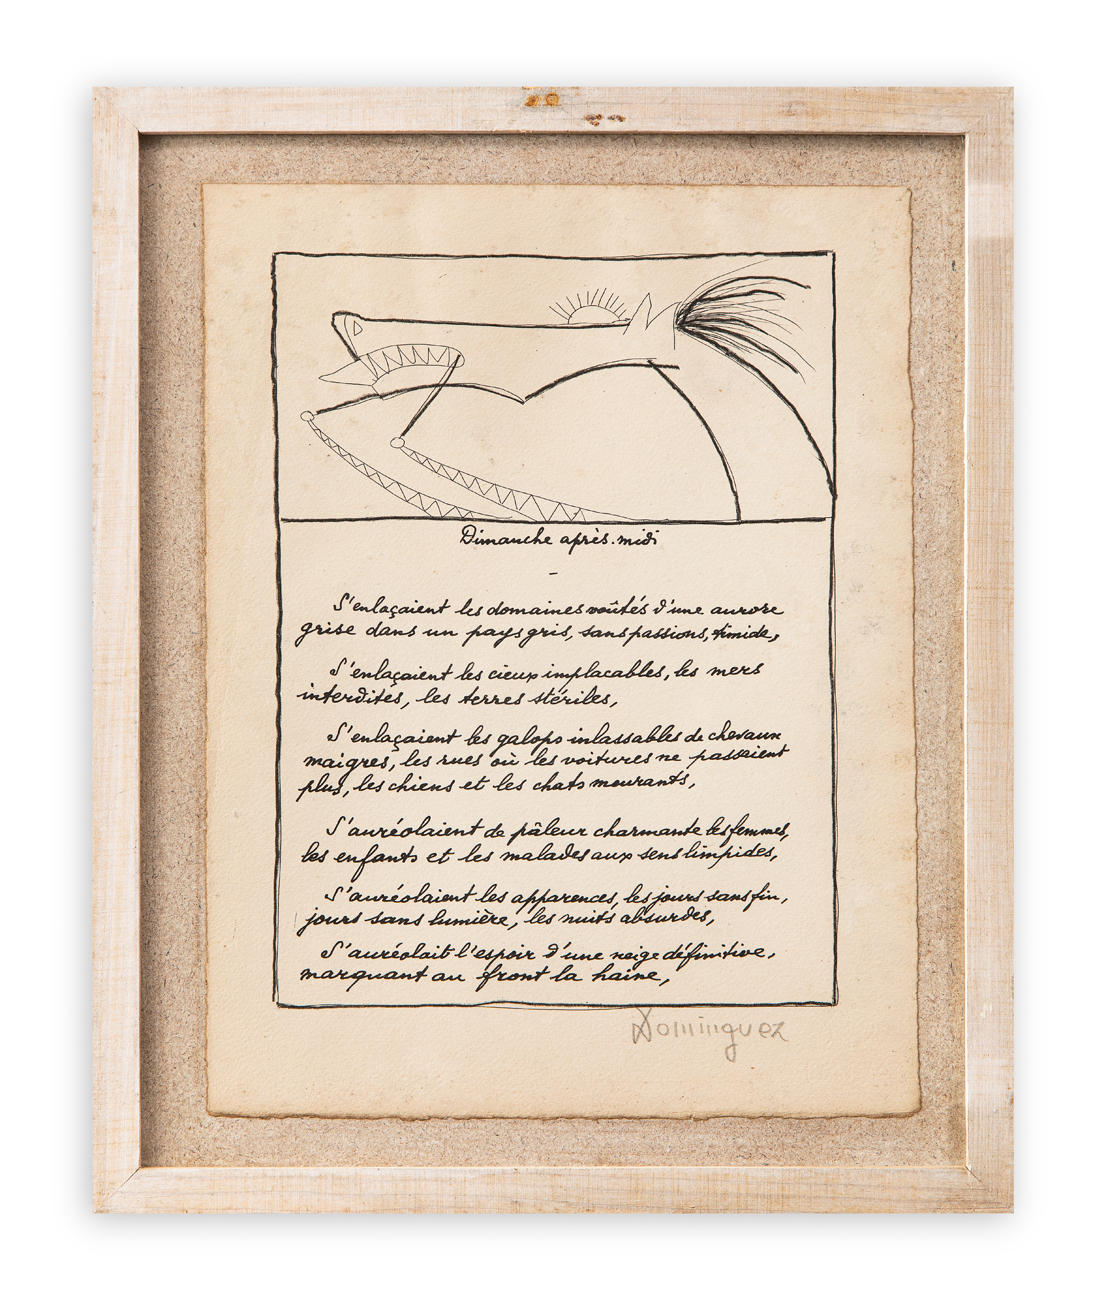 Dimanche après.midi
S'enlaçaient les domaines voûtés d'une aurore
grise dans un pays gris, sans passions, timide,
S'enlaçaient les cieux implacables, les mers
interdites, les terres stériles,
S'enlaçaient les galops inlassables de chevaux
maigres, les rues où les voitures ne passaient
plus, les chiens et les chats mourants,
S'auréolaient de pâleur charmante les femmes,
les enfants et les malades aux sens limpides,
S'auréolaient les apparences, les jours sans fin,
jours sans lumière, les nuits absurdes,
S'auréolait l'espoir d'une neige définitive,
marquant au front la haine,
Dominguez